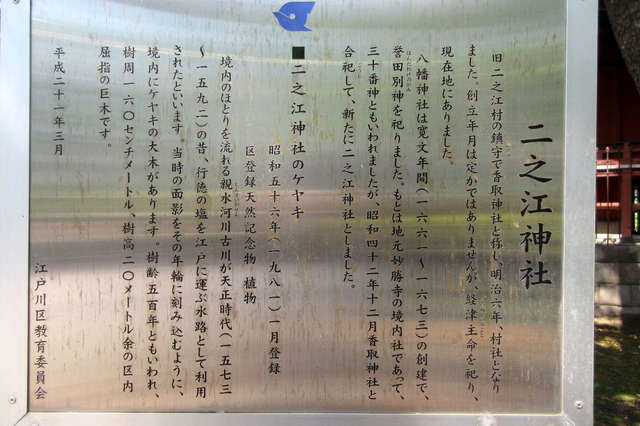 二之江神社
旧二之江村の鎮守で香取神社と称し、明治六年、村社となり
ました。創立年月は定かではありませんが、経津主命を祀り、
現在地にありました。
八幡神社は寛文年間(一六六一~一六七三)の創建で、
誉田別神を祀りました。もとは地元妙勝寺の境内社であって、
三十番神ともいわれましたが、昭和四十二年十二月香取神社と
合祀して、新たに二之江神社としました。
■二之江神社のケヤキ
昭和五十六年(一九八一)一月登録
区登録天然記念物 植物
境内のほとりを流れる親水河川古川が天正時代(一五七三
~一五九二)の昔、行徳の塩を江戸に運ぶ水路として利用
されたといいます。当時の面影をその年輪に刻み込むように、
境内にケヤキの大木があります。樹齢五百年ともいわれ、
樹周一六〇センチメートル、樹高二〇メートル余の区内
屈指の巨木です。
平成二十一年三月
江戸川区教育委員会